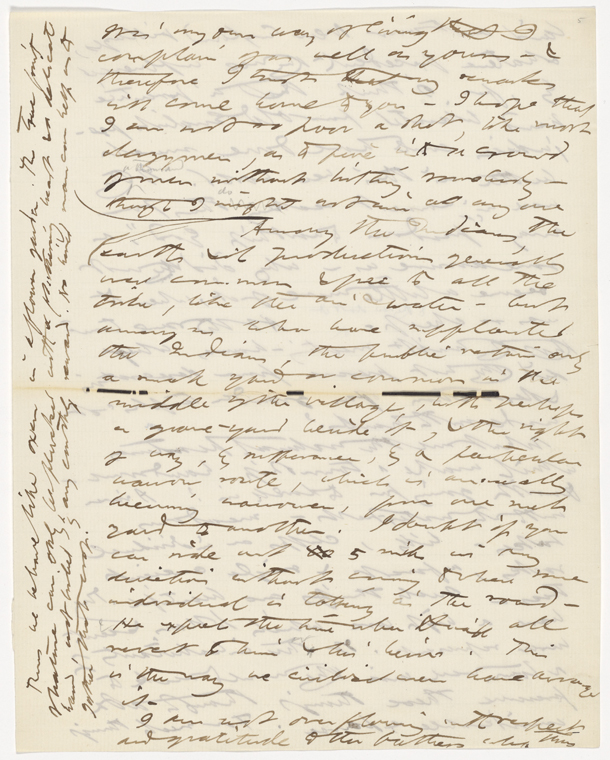 in our way of living to
complain of as well as yours — &
therefore I trust that my remarks
will come home to you — I hope that
I am not so poor a shot, like most
clergymen, as to fire into a crowd
of men without hitting somebody —
though I might not aim at any one
Among the Indians the
earth & its productions generally
were common & free to all the
tribe, like the air & water — but
among us who have supplanted
the Indians, the public retain only
a small yard or common in the
middle of the village, with perhaps
a grave-yard beside it, & the right
of way, by sufferance, by a particular
narrow route, which is annually
becoming narrower, from one such
yard to another. I doubt if you
can ride out 5 miles in any
direction without coming to where some
individual is tolling in the road —
He expects the time when it will all
revert to him & his heirs. This
is the way we civilized men have arranged
it.
I am not overflowing with respect
and gratitude to the fathers who thus
Thus we behave like oxen in a flower garden. The true fruit
of Nature can only be plucked with a fluttering heart & a delicate
hand, not bribed by any earthly reward. No hired man can help us to
gather that crop.